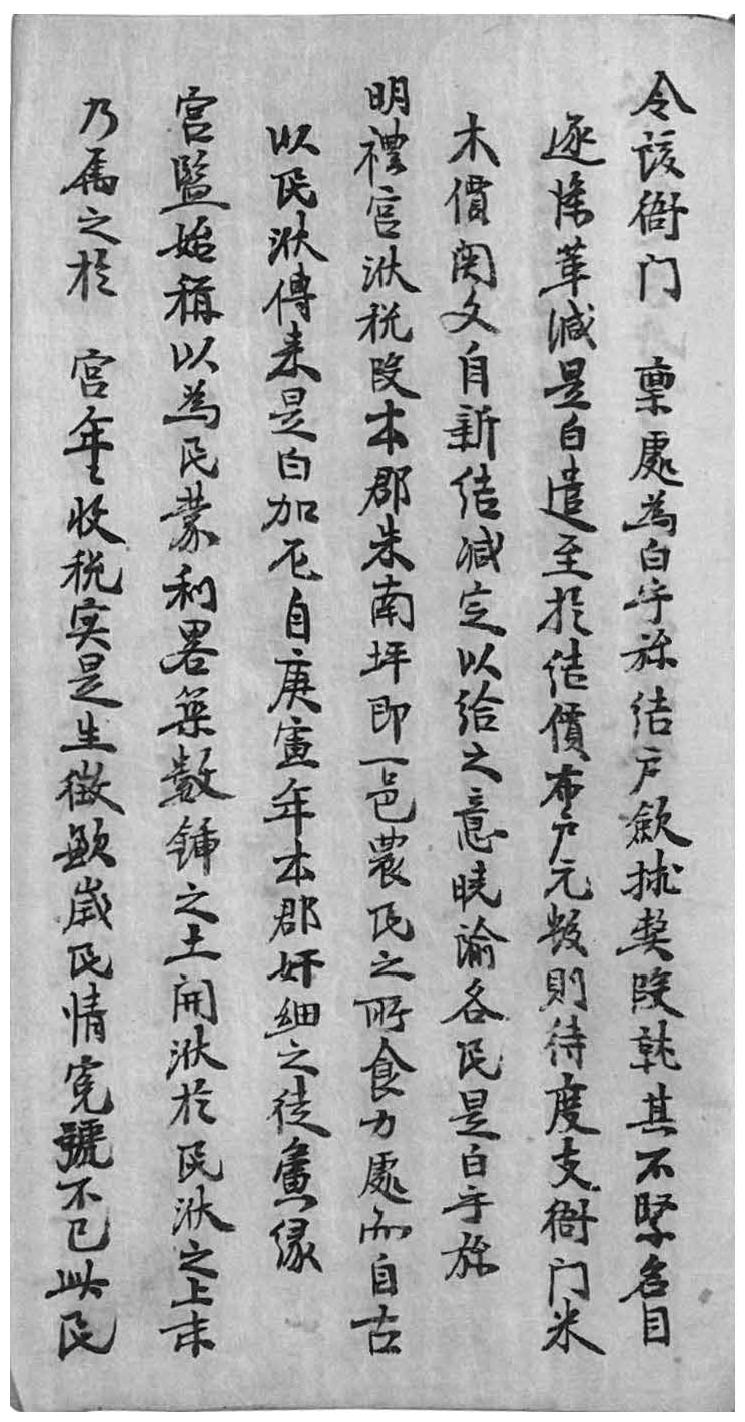 令該衙门 稟處為白乎㫆結户斂捄獘段執其不緊名目
逐條革减是白遣至於結價布户元數則待度支衙门米
木價関文自新結减定以給之意曉諭各民是白乎㫆
明禮宮洑税段本郡朱南坪即一邑農民之所食力處而自古
以民洑傳来是白加尼自庚寅年本郡奸細之徒夤缘
宮監始稱以為民蒙利畧築數鍤之土開洑於民洑之上末
乃属之於 宮年年收税实是生徵歛歲民情寃號不已此民